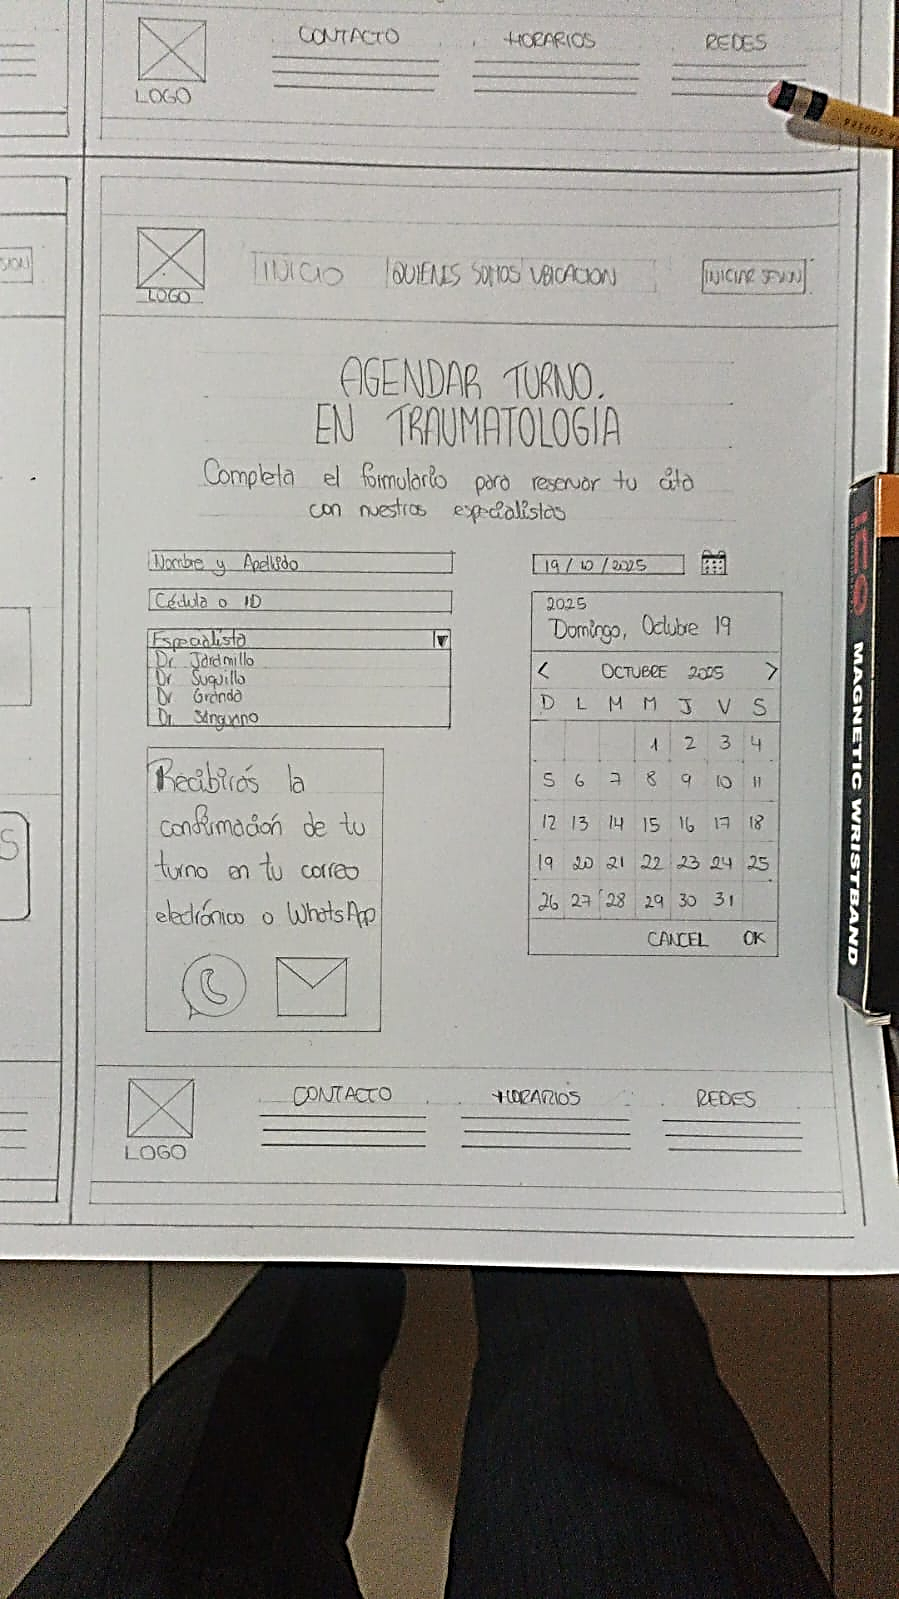 CONTACTO HORARIOS REDES
LOGO
LOGO
INICIO QUIENES SOMOS UBICACION INICIAR SESION
AGENDAR TURNO.
EN TRAUMATOLOGIA
Completa el formulario para reservar tu cita
con nuestros especialistas
Nombre y Apellido
Cédula o ID
Especialista
Dr. Jaramillo
Dr Suquillo
Dr Granda
Dr. Sanguano
Recibirás la
confirmación de tu
turno en tu correo
electrónico o WhatsApp
19/10/2025
2025
Domingo, Octubre 19
< OCTUBRE 2025 >
D L M M J V S
1 2 3 4
5 6 7 8 9 10 11
12 13 14 15 16 17 18
19 20 21 22 23 24 25
26 27 28 29 30 31
CANCEL OK
CONTACTO HORARIOS REDES
LOGO
MAGNETIC WRISTBAND
S